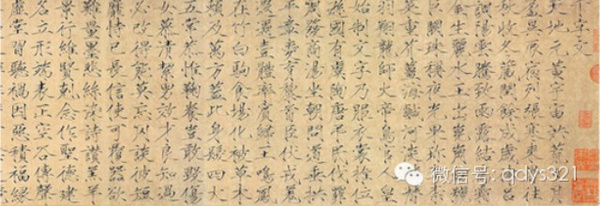 千字文
天地元黃宇宙洪荒日月
盈昃辰宿列張寒來暑往
秋收冬藏閏餘成歲律呂
調陽雲騰致雨露結為霜
金生麗水玉出崑岡劍號
巨闕珠稱夜光果珍李柰
菜重芥薑海鹹河淡鱗潛
羽翔龍師火帝鳥官人皇
始制文字乃服衣裳推位
遜國有虞陶唐弔民伐罪
周發商湯坐朝問道垂拱
平章愛育黎首臣伏戎羌
遐邇壹體率賓歸王鳴鳳
在竹白駒食場化被草木
賴及萬方蓋此身髮四大
五常恭惟鞠養豈敢毀傷
女慕男效才良知過
必改得能莫忘罔談彼短
靡恃己長信使可覆器欲
難量墨悲絲染詩讚羔羊
景行維賢剋念作聖德建
名立形端表正空谷傳聲
虛堂習聽禍因惡積福緣
微信号: qdys321